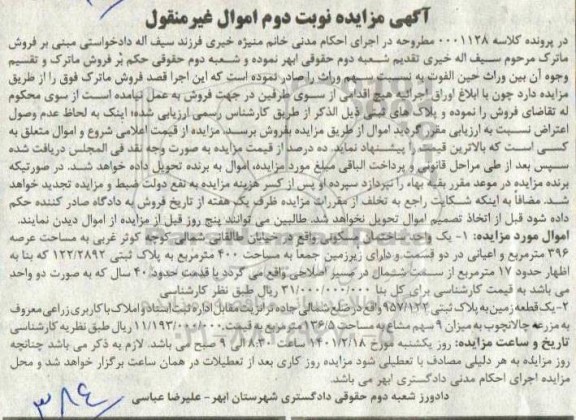 آگهی مزایده نوبت دوم اموال غیرمنقول
در پرونده کلاسه ۰۰۰۱۱۲۸ مطروحه در اجرای احکام مدنی خانم منیژه خیری فرزند سیف آله دادخواستی مبنی بر فروش
ماترک مرحوم سیف اله خیری تقدیم شعبه دوم حقوقی ابهر نموده و شعبه دوم حقوقی حکم بر فروش ماترک و تقسیم
وجوه آن بین وراث حین الفوت به نسبت سهم وراث را صادر نموده است که این اجرا قصد فروش ماترک فوق را از طریق
مزایده دارد چون با ابلاغ اوراق اجرائیه هیچ اقدامی از سوی طرفین در جهت فروش به عمل نیامده است از سوی محکوم
له تقاضای فروش را نموده و پلاک های ثبتی ذیل الذکر از طریق کارشناس رسمی ارزیابی شده؛ اینک به لحاظ عدم وصول
اعتراض نسبت به ارزیابی مقرر گردید اموال از طریق مزایده بفروش برسد. مزایده از قیمت اعلامی شروع و اموال متعلق به
کسی است که بالاترین قیمت را پیشنهاد نماید. ده درصد از قیمت مزایده به صورت وجه نقد فی المجلس دریافت شده
سپس بعد از طی مراحل قانونی و پرداخت الباقی مبلغ مورد مزایده، اموال به برنده تحویل داده خواهد شد. در صورتیکه
برنده مزایده در موعد مقرر بقیه بهاء را نپردازد سپرده او پس از کسر هزینه مزایده به نفع دولت ضبط و مزایده تجدید خواهد
شد. مضافا به اینکه شکایت راجع به تخلف از مقررات مزایده ظرف یک هفته از تاریخ فروش به دادگاه صادر کننده حکم
داده شود قبل از اتخاذ تصمیم اموال تحویل نخواهد شد. طالبین می توانند پنج روز قبل از مزایده از اموال دیدن نمایند.
اموال مورد مزایده: ۱- یک واحد ساختمان مسکونی واقع در خیابان طالقانی شمالی کوچه کوثر غربی به مساحت عرصه
۳۹۶ مترمربع و اعیانی در دو قسمت و دارای زیرزمین جمعا به مساحت ۴۰۰ مترمربع به پلاک ثبتی ۱۲۲/۲۸۹۲ که بنا به
اظهار حدود ۱۷ مترمربع از سمت شمال در مسیر اصلاحی واقع می گردد با قدمت حدود ۴۰ سال که به صورت دو واحد
می باشد به قیمت کارشناسی برای کل بنا ۳۱/۰۰۰/۰۰۰/۰۰۰ ریال طبق نظر کارشناسی
۲- یک قطعه زمین به پلاک ثبتی ۹۵۷/۱۲۲ واقع در ضلع شمالی جاده ترانزیت مقابل اداره ثبت اسناد و املاک با کاربری زراعی معروف
به مزرعه چالانچوب به میزان ۹ سهم مشاع به مساحت ۱۳۶/۵ مترمربع به قیمت ۱۱/۱۹۳/۰۰۰/۰۰۰ ریال طبق نظریه کارشناسی
تاریخ و ساعت مزایده: روز یکشنبه مورخ ۱۴۰۱/۲/۱۸ ساعت ۸:۳۰ الی ۹ صبح می باشد. لازم به ذکر می باشد چنانچه
روز مزایده به هر دلیلی مصادف با تعطیلی شود مزایده روز کاری بعد از تعطیلات در همان ساعت برگزار خواهد شد و محل
مزایده اجرای احکام مدنی دادگستری ابهر می باشد.
دادورز شعبه دوم حقوقی دادگستری شهرستان ابهر - علیرضا عباسی